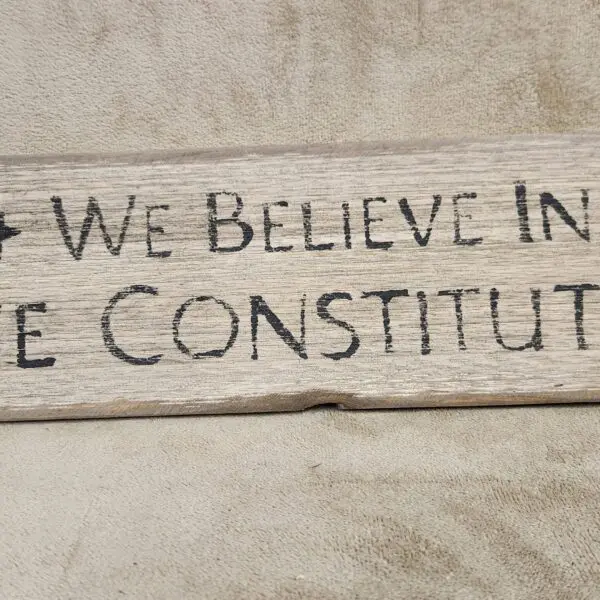 We Believe In
E Constitut